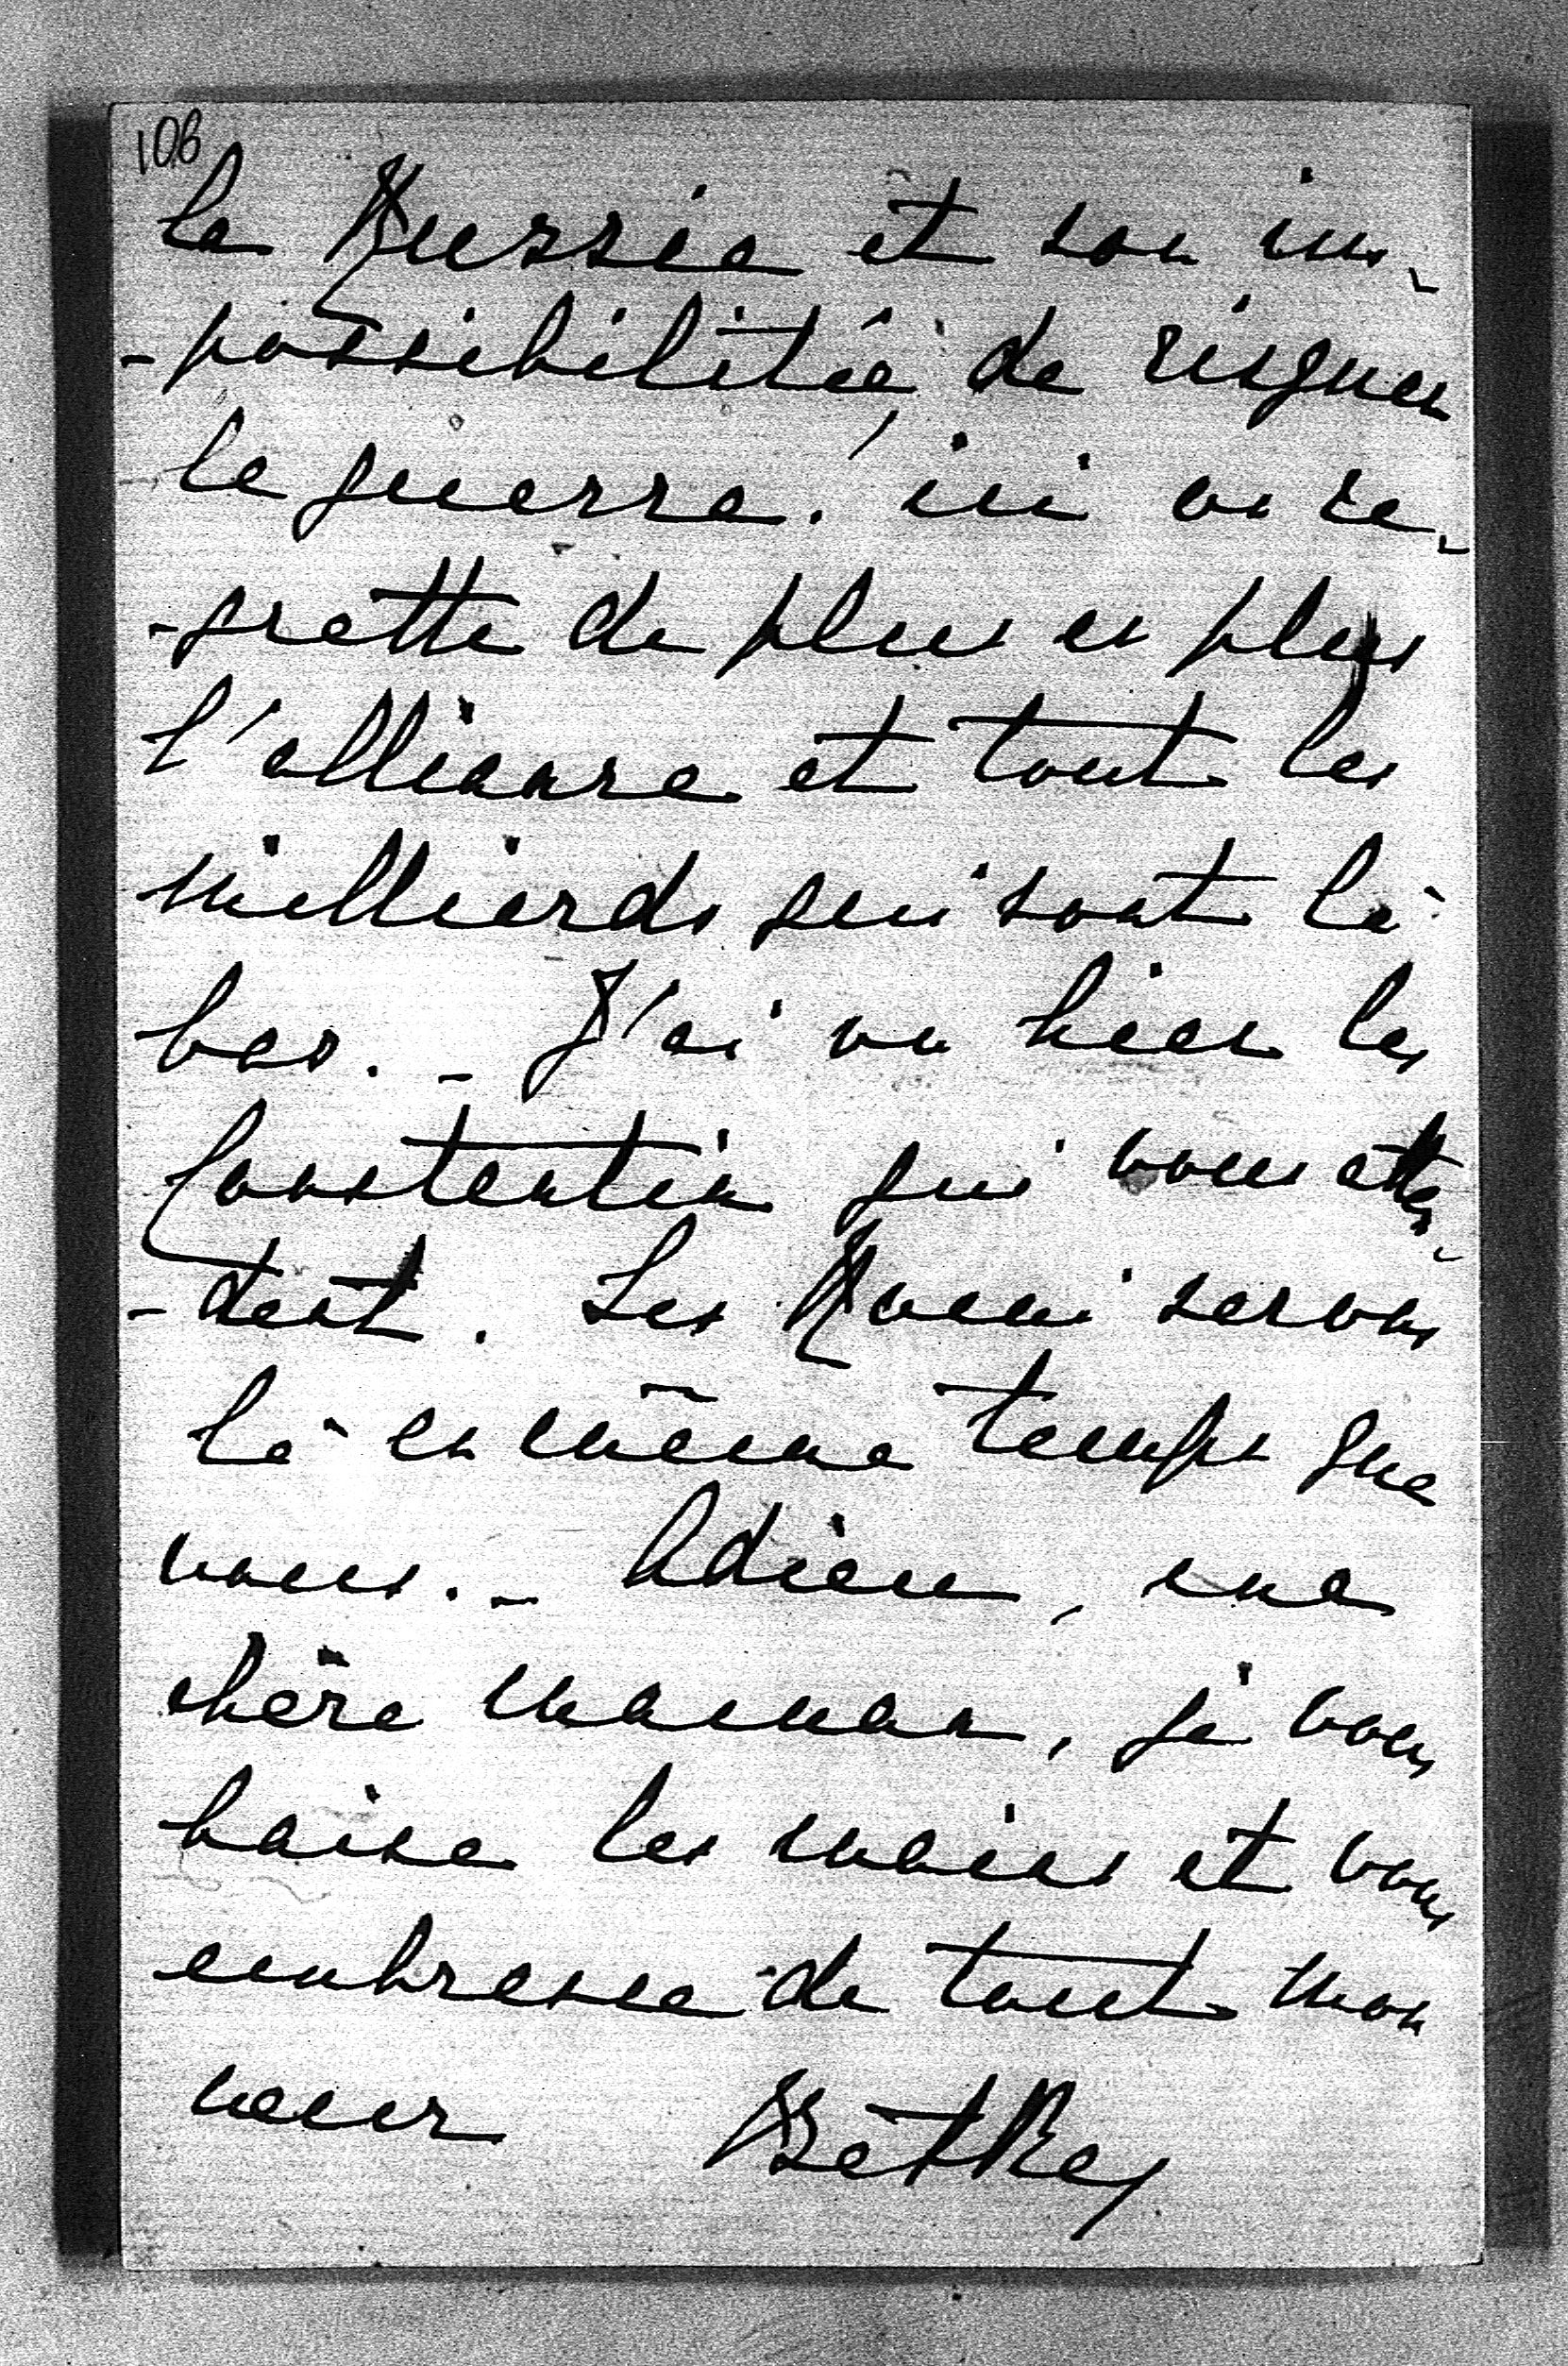 106
la Russie et son im-
-possibilitée de risquer
la guerre. ici on re-
-grette de plus en plus
l'alliance et tout les
milliards qui sont là
bas. - J'ai vu hier les
Constantin qui vous atten-
-dent. Les seront
là en même temps que
vous. - Adieu, ma
chère maman, je vous
baise les mains et vous
embrasse de tout mon
coeur Betkey